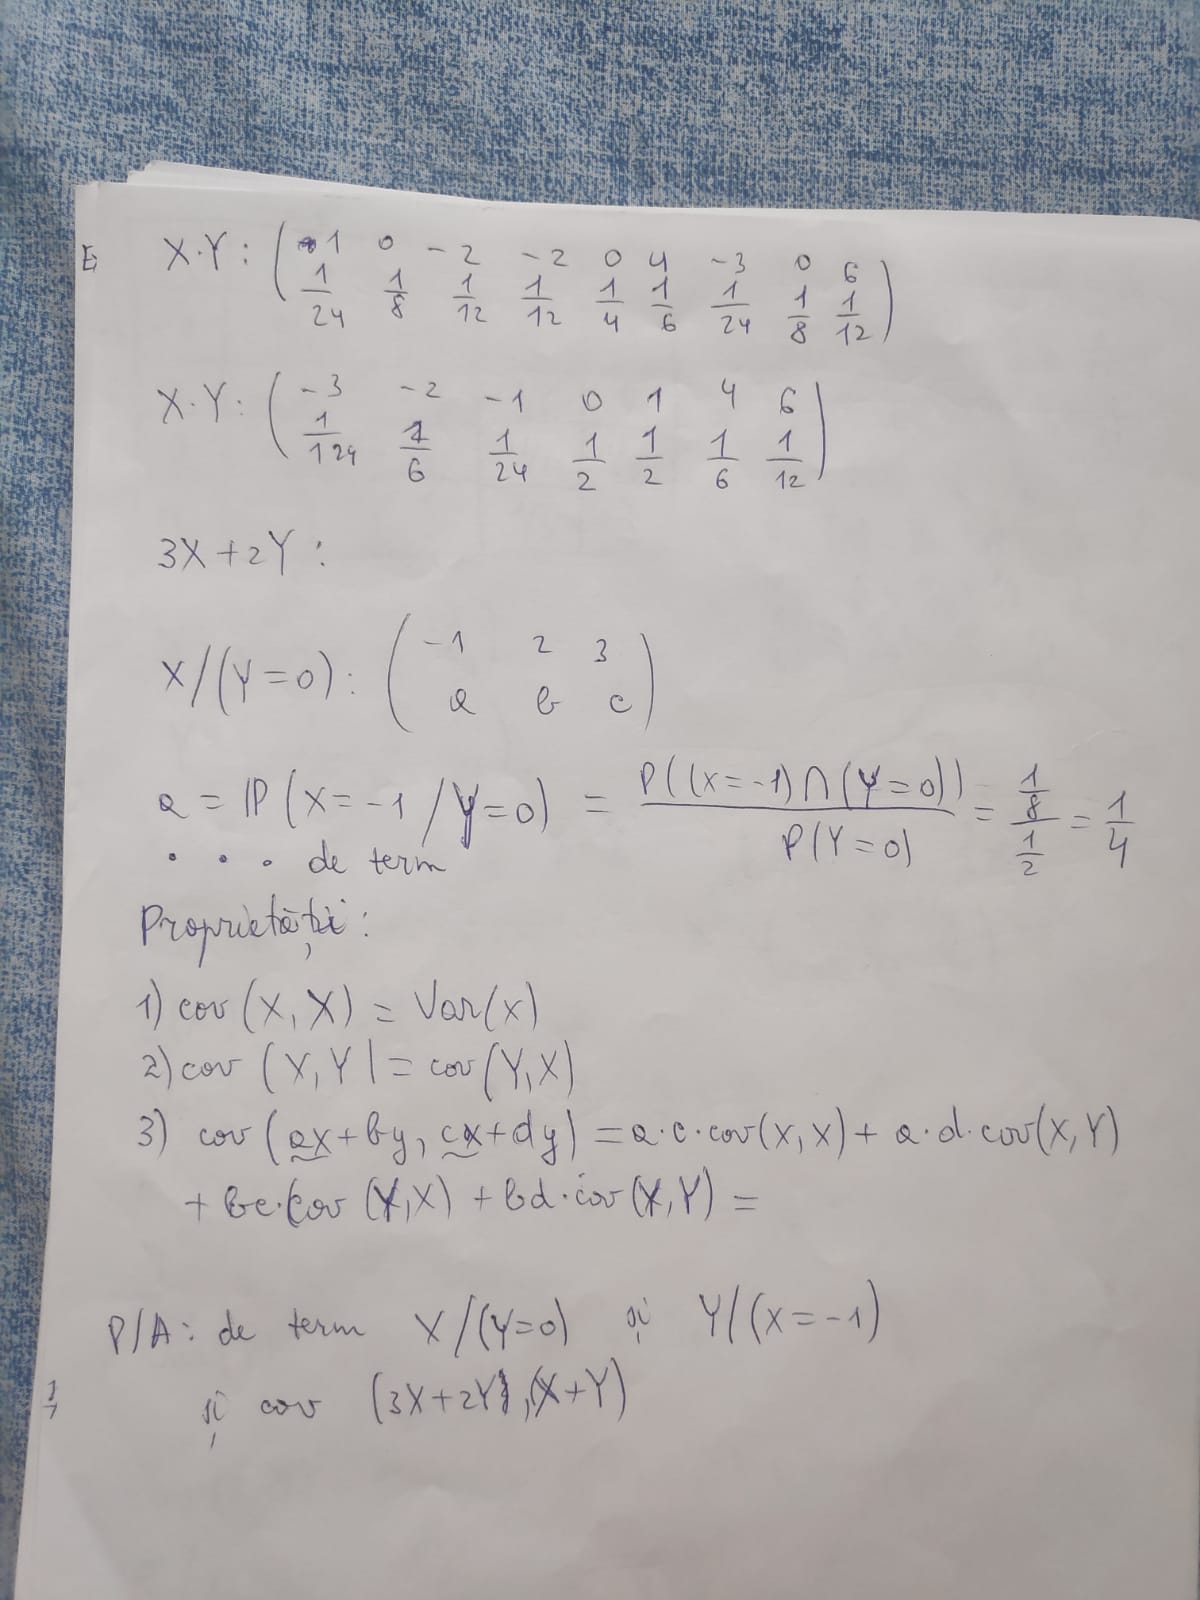 E
X·Y: ( 1 0 -2 -2 0 4 -3 0 6
1/24 1/8 1/12 1/12 1/4 1/6 1/24 1/8 1/12 )
X·Y: ( -3 -2 -1 0 1 4 6
1/124 1/6 1/24 1/2 1/2 1/6 1/12 )
3X+2Y:
X/(Y=0): ( -1 2 3
a b c )
a = P(X=-1/Y=0) = P((X=-1)∩(Y=0)) / P(Y=0) = 1/8 / 1/2 = 1/4
. . . de term
Proprietăți:
1) cov(X,X) = Var(x)
2) cov (X,Y) = cov(Y,X)
3) cov(ax+by, cx+dy) = a·c·cov(X,X) + a·d·cov(X,Y)
+ bc·cov(Y,X) + bd·cov(Y,Y) =
P/A: de term X/(Y=0) și Y/(X=-1)
și cov (3X+2Y, X+Y)